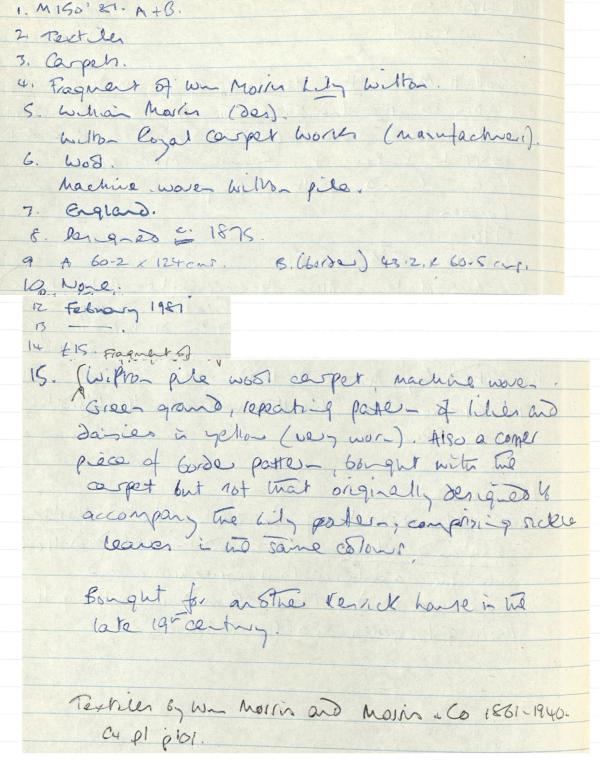 1. M150'81. A+B.
2. Textiles
3. Carpets.
4. Fragment of Wm Morris Lily Wilton.
5. William Morris (des).
Wilton Royal Carpet Works (manufacturer).
6. Wool.
Machine-woven Wilton pile.
7. England.
8. Designed c. 1875.
9 A 60.2 x 124 cms. B. (border) 43.2 x 60.5 cms.
10. None.
12 February 1981
13 —.
14 £15. Fragment of
15. Wilton pile wool carpet, machine woven.
Green ground, repeating pattern of lilies and
daisies in yellow (very worn). Also a corner
piece of border pattern, bought with the
carpet but not that originally designed to
accompany the Lily pattern, comprising sickle
leaves in the same colours.
Bought for another house in the
late 19th century.
Textiles by Wm Morris and Morris & Co 1861-1940.
p101.